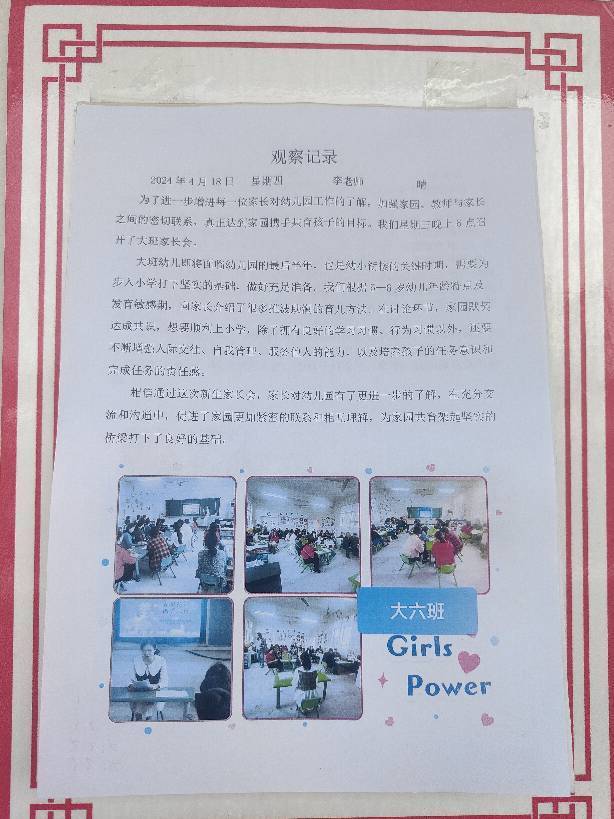 观察记录
2024年4月18日 星期四 李老师 晴
为了进一步增进每一位家长对幼儿园工作的了解，加强家园、教师与家长
之间的密切联系，真正达到家园携手共育孩子的目标。我们星期三晚上6点召
开了大班家长会。
大班幼儿即将面临幼儿园的最后半年，也是幼小衔接的关键时期，需要为
步入小学打下坚实的基础，做好充足准备。我们根据5—6岁幼儿年龄特点及
发育敏感期，向家长介绍了很多的育儿方法。在讨论环节，家园默契
达成共识，想要顺利上小学，除了拥有良好的学习习惯、行为习惯以外，还要
不断增强人际交往、自我管理、服务他人的能力，以及培养孩子的任务意识和
完成任务的责任感。
相信通过这次新生家长会，家长对幼儿园有了更进一步的了解，在充分交
流和沟通中，促进了家园更加紧密的联系和相互理解，为家园共育架起坚实的
桥梁打下了良好的基础。
大六班
Girls
Power